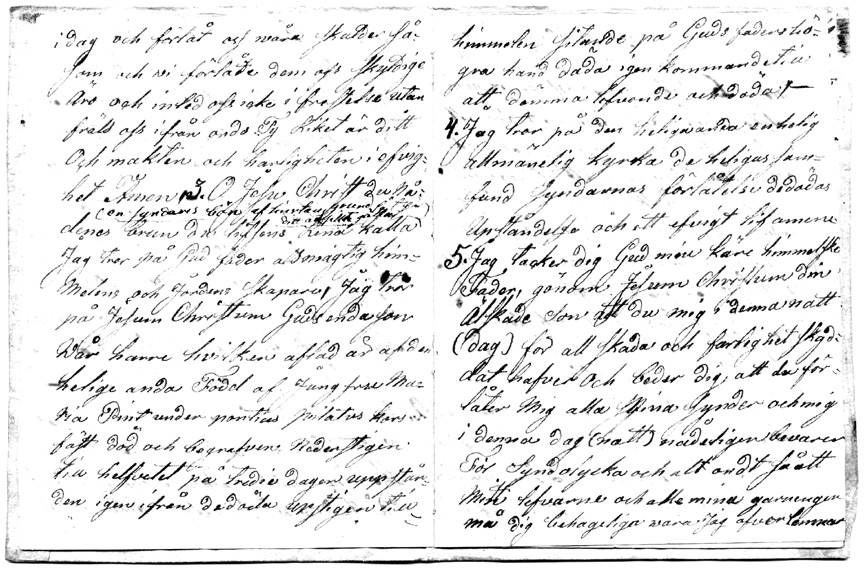 i dag och förlåt oss wåra skulder så-
som och vi förlåte dem oss skyldige
äro och inled oss icke i frestelse utan
fräls oss ifrån ondo Ty Riket är ditt
Och makten och härligheten i efvig-
het Amen 3. O Jesu Christ du nå-
(en syndares bön af hiertans grund
denes brun du lifsens rena källa)
Jag tror på Gud fader alsmägtig him-
melens och Jordens skapare, Jag tror
på Jesum Christum Guds enda son
Vår harre hvilken aflad är af den
helige anda Född af Jungfrue Ma-
ria Pint under pontius pilatus kors-
fäst död och begrafven Nederstigen
till helfvetet på tredie dagen uppstån-
den igen ifrån de döda upstigen till
himmelen sitande på Guds faders hö-
gra hand dada igen kommande till
att dömma lefvande och döda
4. Jag tror på den heligaanda en helig
allmänelig kyrka de heligas sam-
fund syndarnas förlåtelse de dödas
Upståndelse och ett efvigt lif amen
5. Jag tacker dig Gud min käre himmelske
Fader, genom Jesum Christum din
Älskade son att du mig i denna natt
(dag) för all skada och farlighet skyd-
dat hafver Och beder dig, att du för-
låter mig alla Mina synder och mig
i denna dag (natt) nådeligen bevarer
För Syndolycka och alt ondt så att
Mitt lefvarne och alla mina garningar
må dig behageliga wara Jag öfverlemnar